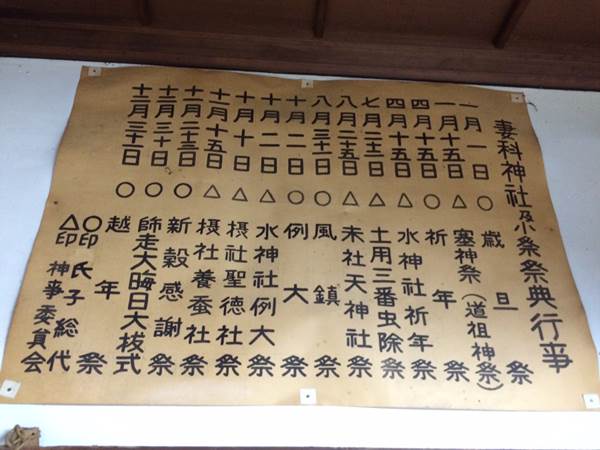 妻科神社及小祭典行事
一月一日 ○ 歳旦祭
一月十五日 △ 塞神祭(道祖神祭)
四月十五日 ○ 祈年祭
四月十五日 △ 水神社祈年祭
七月二十二日 △ 土用三番虫除祭
八月二十五日 △ 末社天神社祭
八月三十一日 ○ 風鎮祭
十月二日 ○ 例大祭
十月二日 △ 水神社例大祭
十月十日 △ 摂社聖徳社祭
十一月十五日 △ 摂社養蚕社祭
十一月二十三日 ○ 新穀感謝祭
十二月三十日 ○ 師走大晦日大祓式
十二月三十一日 ○ 越年祭
○印 氏子総代
△印 神事委員会